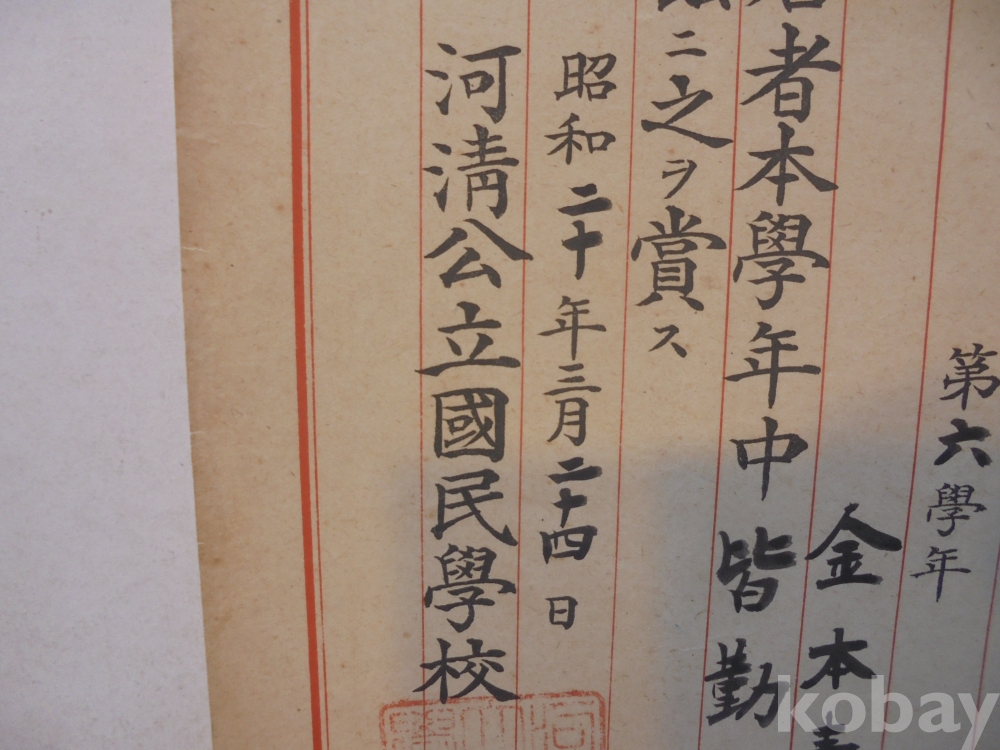 第六學年
金本
者本學年中皆勤
ニ之ヲ賞ス
昭和二十年三月二十四日
河淸公立國民學校
kobay